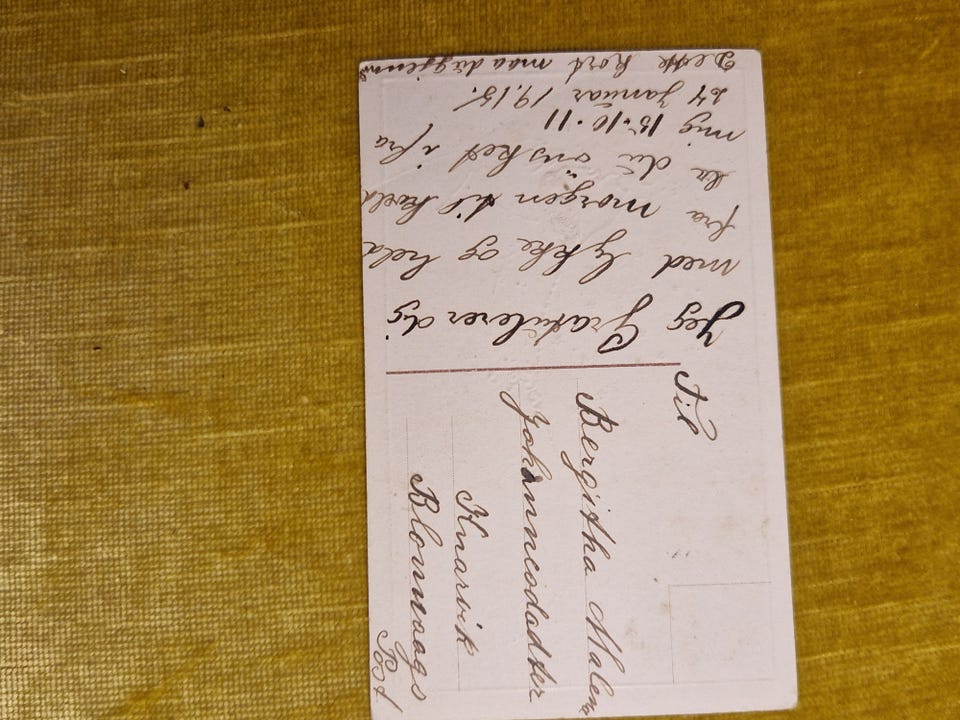 Jeg Gratulerer dig
med lykke og held
fra morgen til kveld
du önsket ifra
mig 15-10-11
24 Januar 1915.
Dette kort maa du
Til
Bergitha Malena
Johannesdadter
Knarvik
Blomvaags
Post